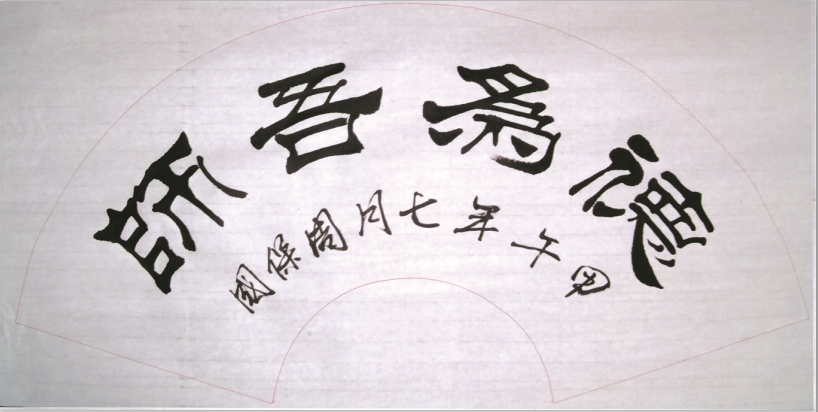 德為吾師
甲午年七月周保國